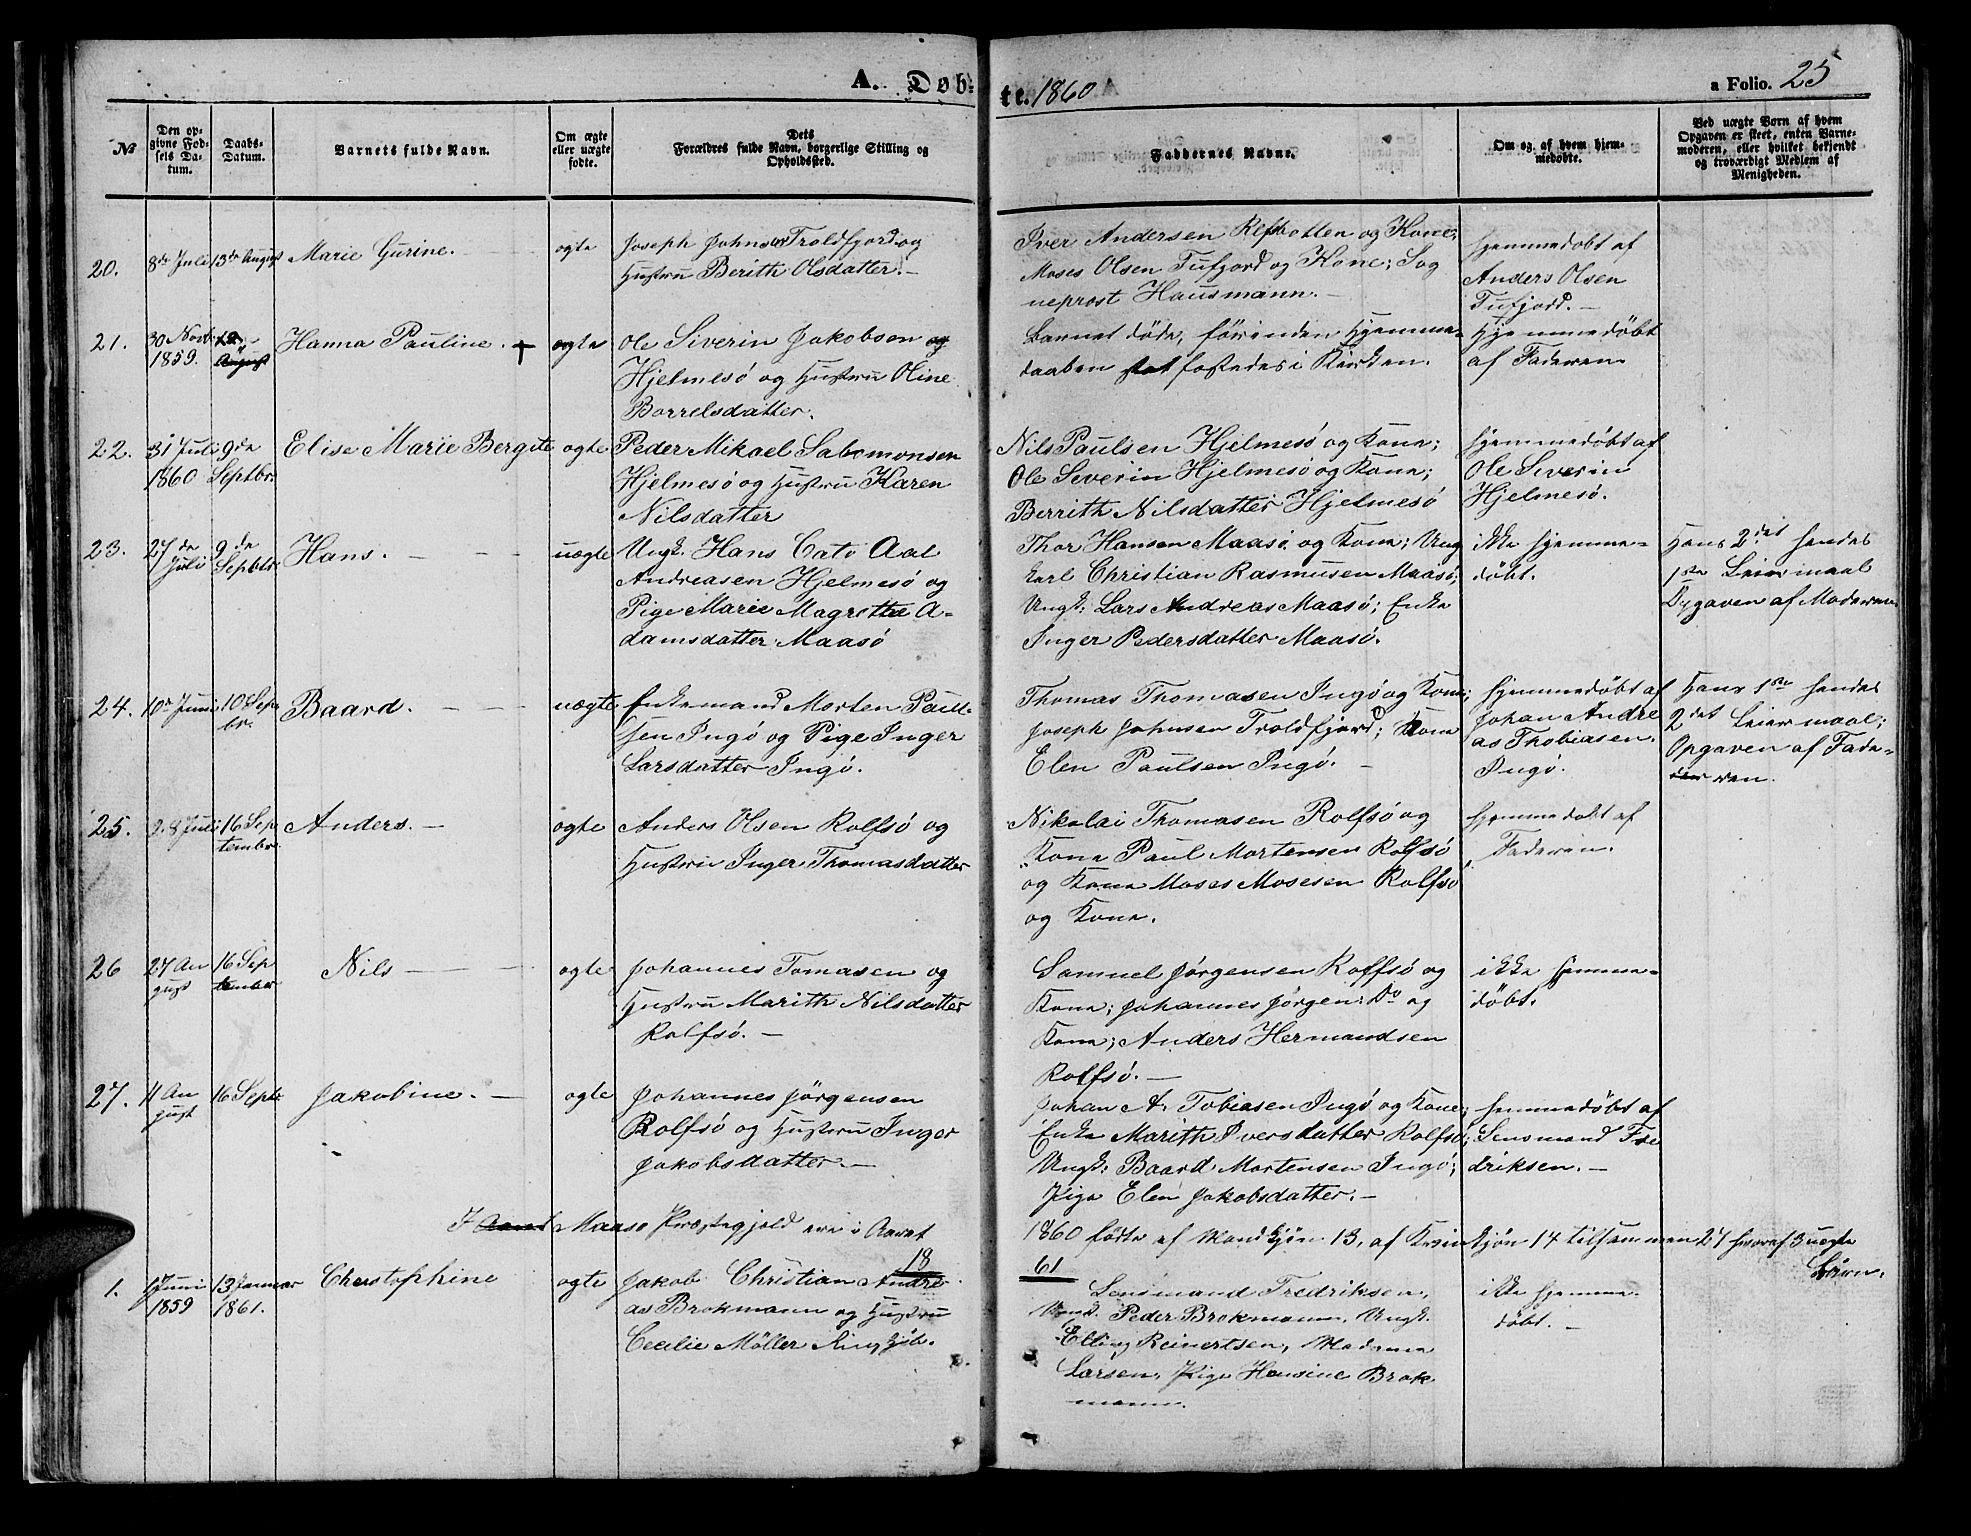 A. Døb-
te. 1860
a Folio. 25
№
Den op-
givne Fød-
sels Da-
tum.
Daabs-
Datum.
Barnets fulde Navn.
Om ægte
eller uægte
fødte.
Dets
Forældres fulde Navn, borgerlige Stilling og
Opholdssted.
Faddernes Navne.
Om og af hvem hjem-
medøbte.
Ved uægte Børn af hvem
Opgaven er skeet, enten Barne-
moderen, eller hvilket bekjendt
og troværdigt Medlem af
Menigheden.
20.
8de Juli
13de August
Marie Gurine.
ægte
Joseph Johnsen Troldfjord og
Hustru Berith Olsdatter.
Iver Andersen Refsbotten og Kone;
Moses Olsen Tufjord og Kone; Sog
neprost Hausmann.
Hjemmedøbt af
Anders Olsen
Tufjord.
21.
30 Novb
1859.
August
Hanna Pauline. +
ægte
Ole Siverin Jakobsen og
Hjelmesø og Hustru Oline
Borrelsdatter.
Barnet døde, førinden Hjemme-
daaben stadfæstedes i Kirken.
Hjemmedøbt
af Faderen
22.
31 Juli
1860
9de
Septbr.
Elise Marie Bergite
ægte
Peder Mikael Salomonsen
Hjelmesø og Hustru Karen
Nilsdatter
Nils Paulsen Hjelmesø og Kone;
Ole Severin Hjelmesø og Kone;
Berrith Nilsdatter Hjelmesø
Hjemmedøbt af
Ole Severin
Hjelmesø.
23.
27de
Juli
9de
Septbr.
Hans.
uægte
Ungk. Hans Cato Aal
Andreasen Hjelmesø og
Pige Marie Magrethe A-
damsdatter Maasø
Thor Hansen Maasø og Kone; Ung
karl Christian Rasmusen Maasø;
Ungk: Lars Andreas Maasø; Enke
Inger Pedersdatter Maasø.
ikke hjemme-
døbt.
Hans 2det hendes
1ste Leiermaal
Opgaven af Moderen
24.
10de Juni
10 Sep
br.
Baard.
uægte
Enkemand Morten Paul-
sen Ingø og Pige Inger
Larsdatter Ingø.
Thomas Thomasen Ingø og Kone;
Joseph Johnsen Troldfjord; Kone
Elen Paulsen Ingø.
Hjemmedøbt af
Johan Andre
as Thobiasen
Ingø.
Hans 1ste hendes
2det Leiermaal;
Opgaven af Fade-
ren.
25.
28 Juli
16 Sep
tembr.
Anders.
ægte
Anders Olsen Rolfsø og
Hustru Inger Thomasdatter
Nikolai Thomasen Rolfsø og
Kone Paul Mortensen Rolfsø
og Kone Moses Mosesen Rolfsø
og Kone.
Hjemmedøbt af
Faderen.
26
27 Au
gust
16 Sep
tember
Nils
ægte
Johannes Tomasen og
Hustru Marith Nilsdatter
Rolfsø.
Samuel Jørgensen Rolfsø og
Kone; Johannes Jørgen: Do og
Kone; Anders Hermandsen
Rolfsø.
ikke hjemme-
døbt.
27.
11 Au
gust
16 Septr
Jakobine.
ægte
Johannes Jørgensen
Rolfsø og Hustru Inger
Jakobsdatter.
Johan A. Tobiasen Ingø og Kone;
Enke Marith Iversdatter Rolfsø;
Ungk: Baard Mortensen Ingø;
Pige Elen Jakobsdatter.
Hjemmedøbt af
Lensmand Fre
driksen.
I Maasø Præstegjeld ere i Aaret
1860 fødte af Mandkjøn 13, af Kvinkjøn 14 tilsammen 27 hvoraf 3 uægte
Børn.
18
61
1.
1 Juni
1859
13 Januar
1861.
Cherstophine
ægte
Jakob Christian Andre
as Brokmann og Hustru
Cecilie Møller
Lensmand Fredriksen,
Ungk. Peder Brokmann, Ungk.
Elling Reinertsen, Madame
Larsen, Pige Hansine Brok
mann.
ikke hjemme-
døbt.